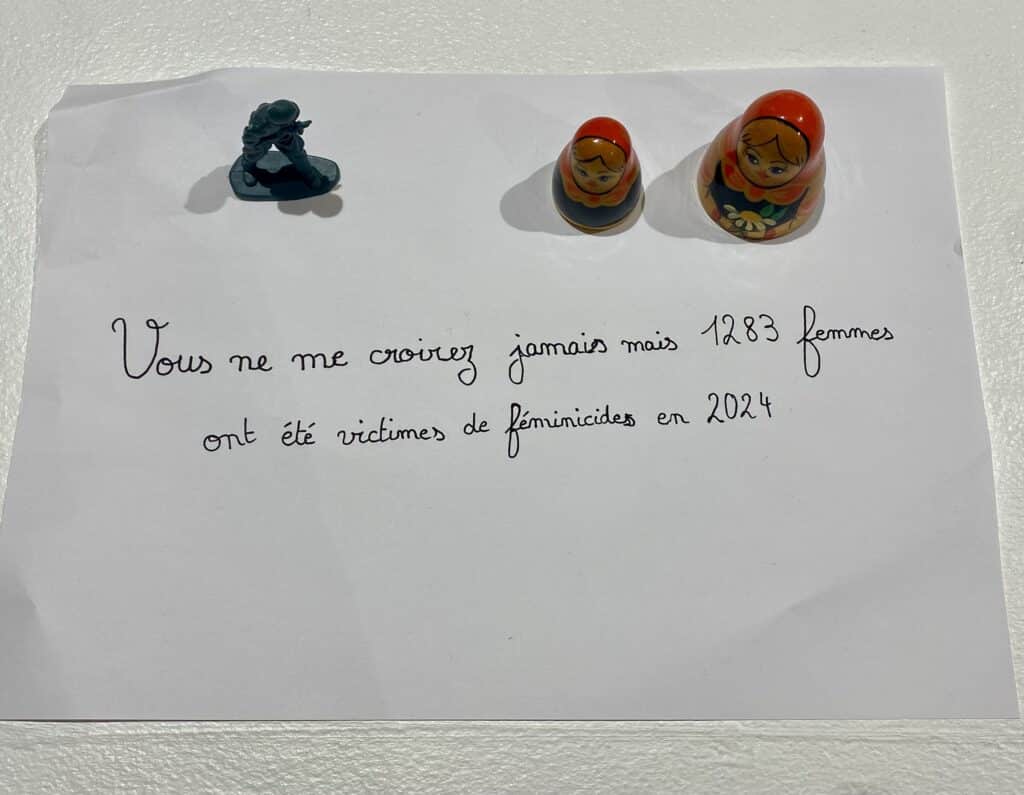 Vous ne me croirez jamais mais 1283 femmes
ont été victimes de féminicides en 2024